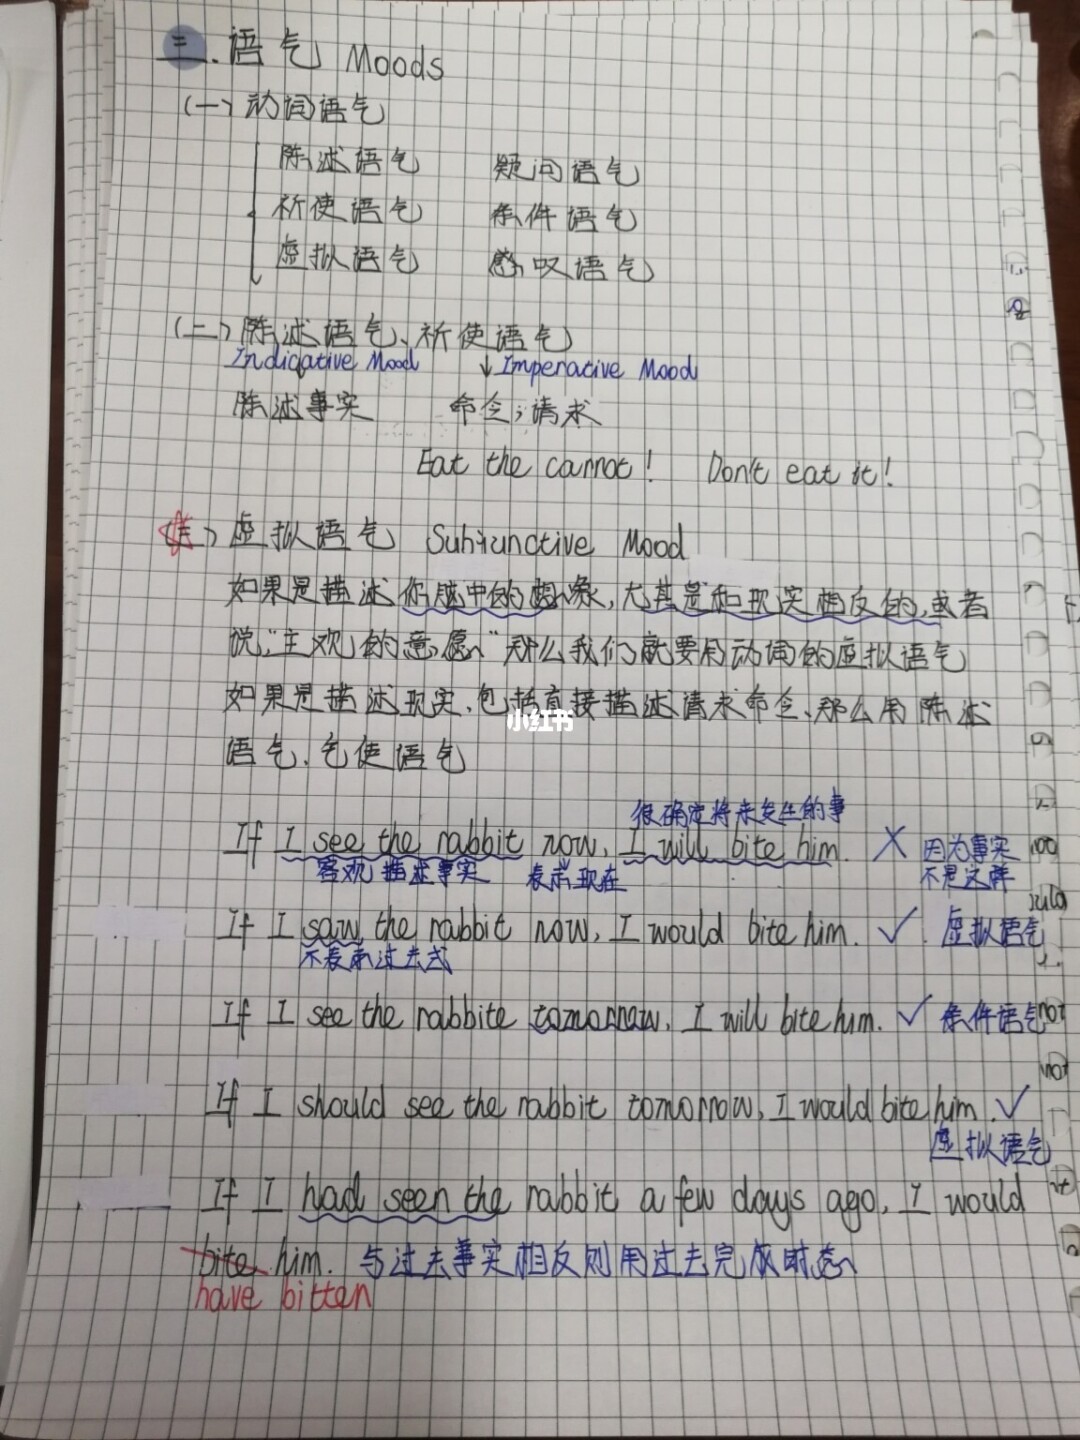 三.语气 Moods
(一)动词语气
陈述语气 疑问语气
祈使语气 条件语气
虚拟语气 感叹语气
(二)陈述语气、祈使语气
Indicative Mood ↓Imperative Mood
陈述事实 命令;请求
Eat the carrot! Don't eat it!
(三)虚拟语气 Subjunctive Mood
如果是描述你脑中的想象,尤其是和现实相反的,或者
说,"主观的意愿"那么我们就要用动词的虚拟语气
如果是描述现实、包括直接描述请求命令、那么用陈述
小红书
语气、乞使语气
很确定将来发生的事
If I see the rabbit now, I will bite him. ✗ 因为事实
客观描述事实 表示现在 不是这样
If I saw the rabbit now, I would bite him. ✓. 虚拟语气
不表示过去式
If I see the rabbite tomorrow, I will bite him. ✓ 条件语气
If I should see the rabbit tomorrow, I would bite him. ✓
虚拟语气
If I had seen the rabbit a few days ago, I would
bite him. 与过去事实相反则用过去完成时态
have bitten